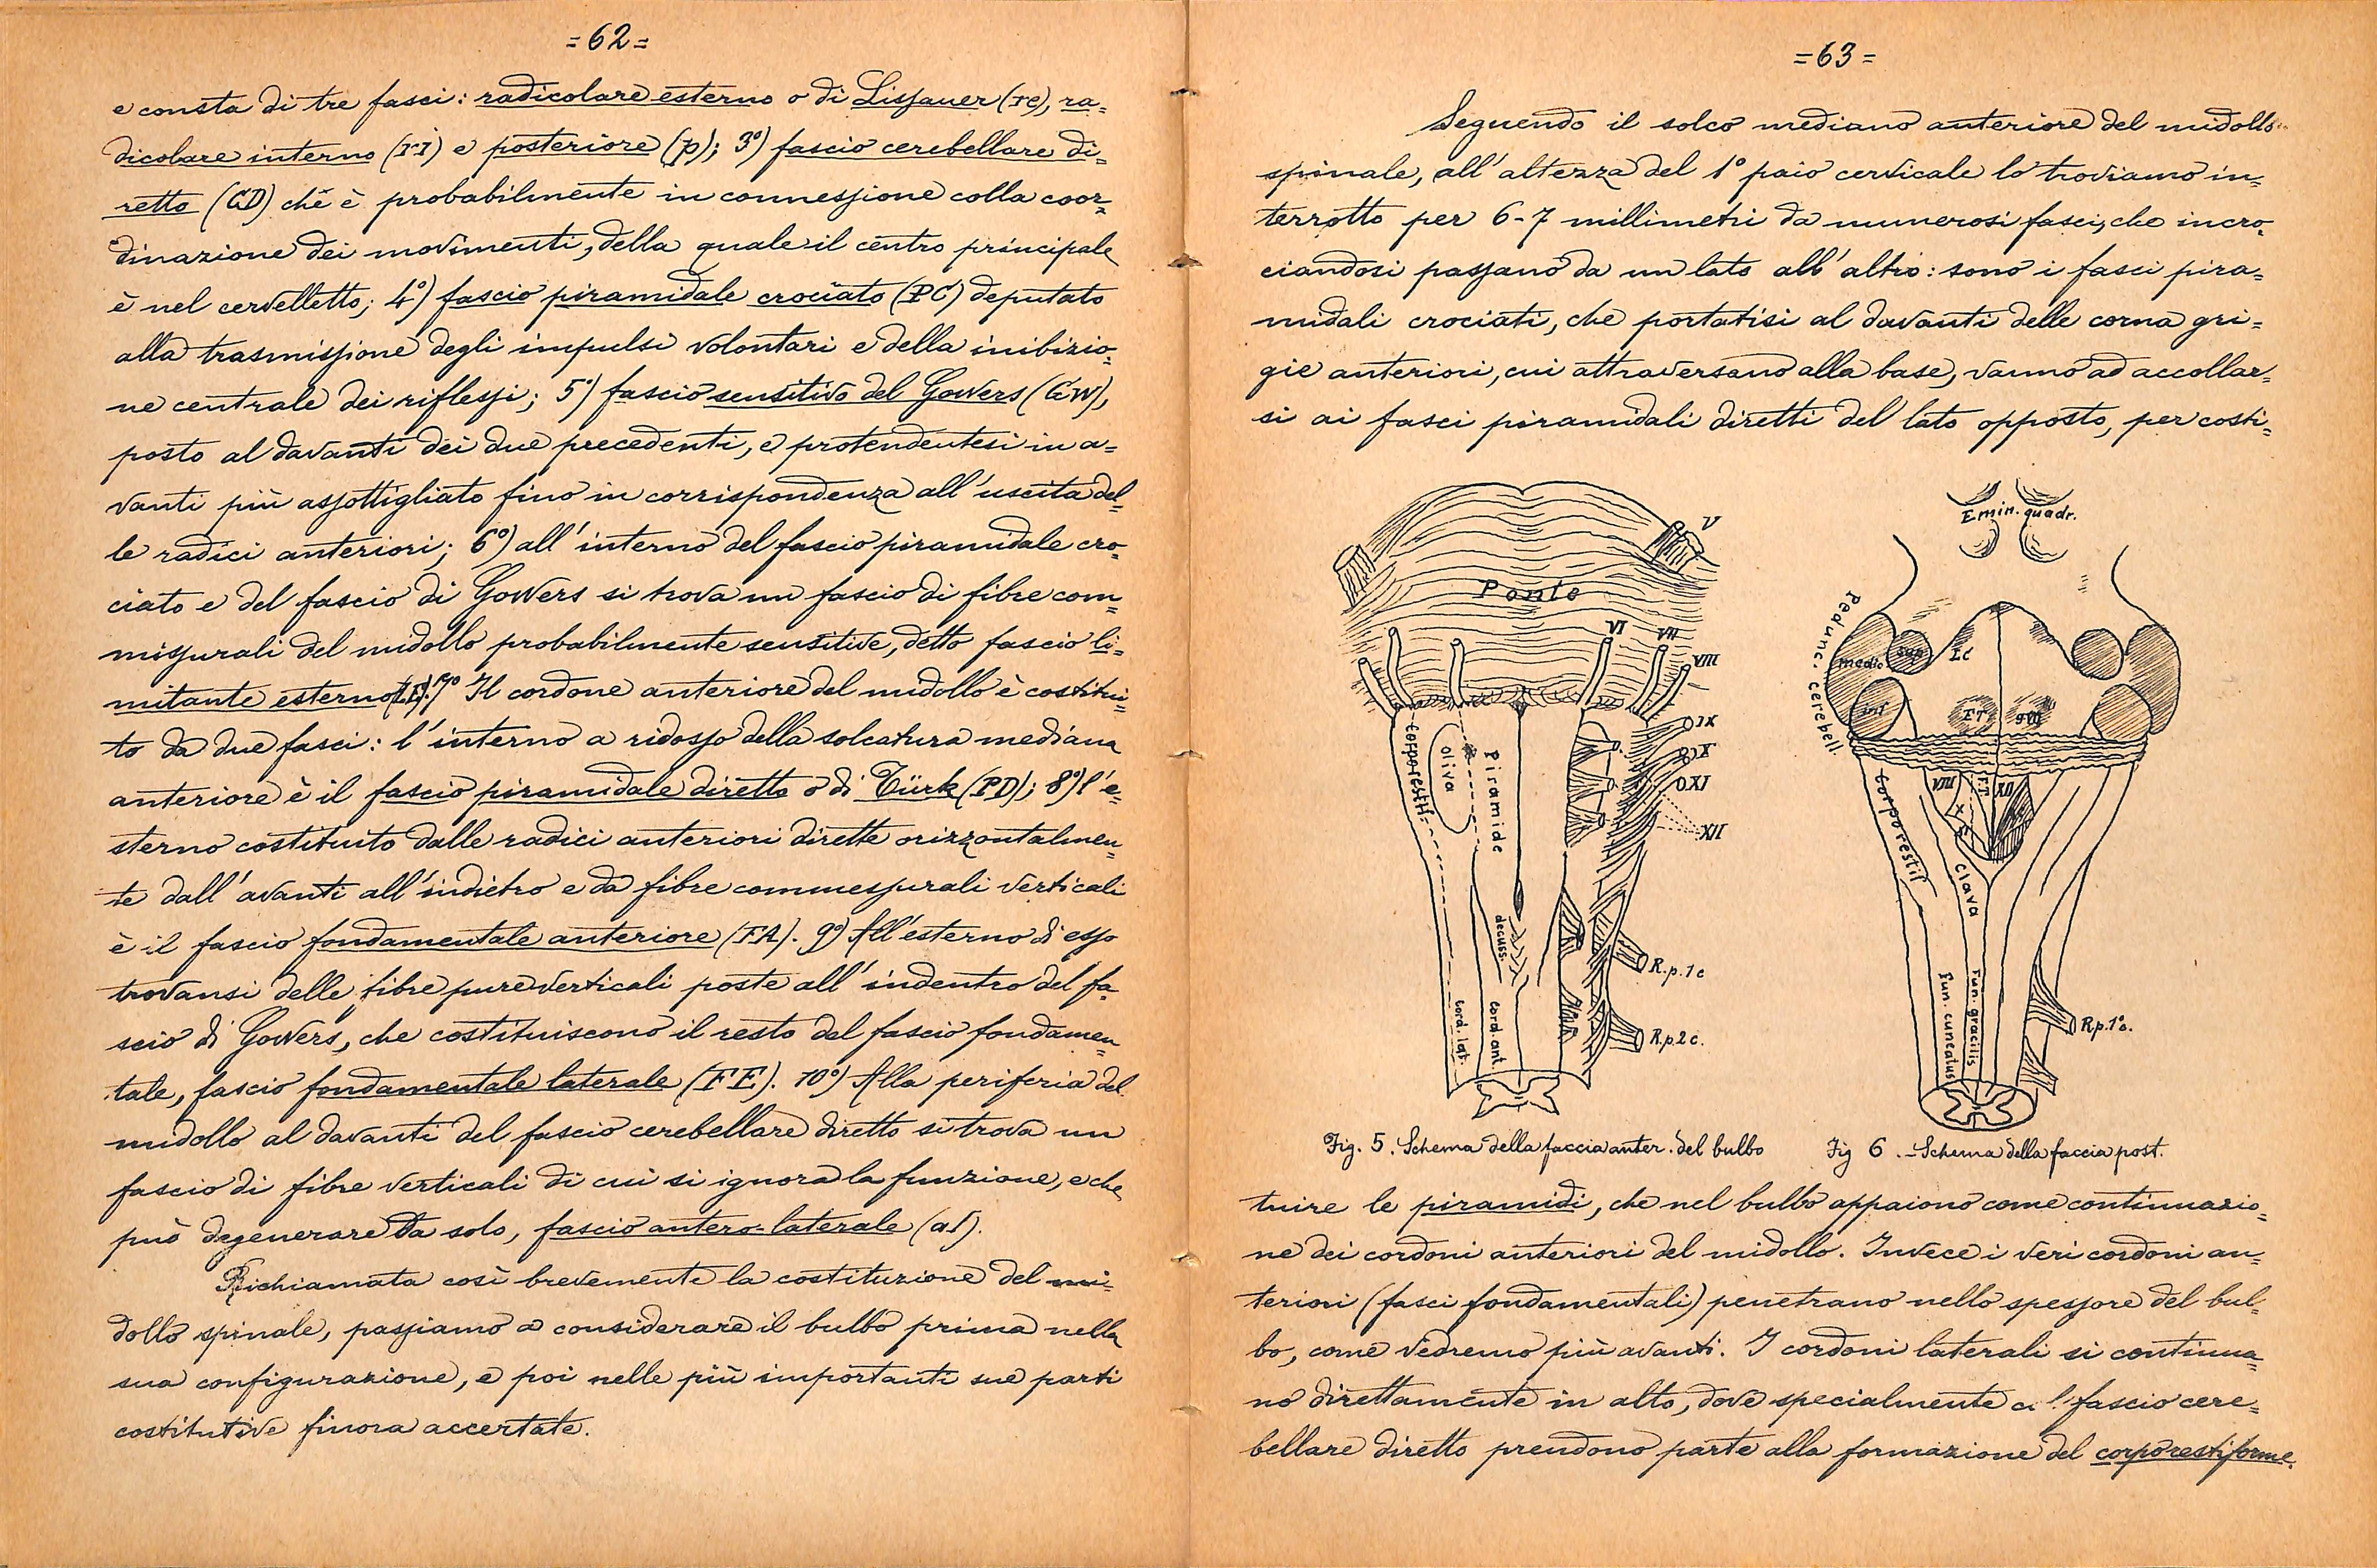 =62=
e consta di tre fasci: radicolare esterno o di Lissauer (re), ra=
dicolare interno (ri) e posteriore (p); 3º) fascio cerebellare di=
retto (CD) che è probabilmente in connessione colla coor=
dinazione dei movimenti, della quale il centro principale
è nel cervelletto; 4º) fascio piramidale crociato (PC) deputato
alla trasmissione degli impulsi volontari e della inibizio=
ne centrale dei riflessi; 5º) fascio sensitivo del Gowers (GW),
posto al davanti dei due precedenti, e protendentesi in a=
vanti più assottigliato fino in corrispondenza all'uscita del=
le radici anteriori; 6º) all'interno del fascio piramidale cro=
ciato e del fascio di Gowers si trova un fascio di fibre com=
missurali del midollo probabilmente sensitive, detto fascio li=
mitante esterno (LE). 7º Il cordone anteriore del midollo è costitui=
to da due fasci: l'interno a ridosso della solcatura mediana
anteriore è il fascio piramidale diretto o di Türk (PD); 8º) l'e=
sterno costituito dalle radici anteriori dirette orizzontalmen=
te dall'avanti all'indietro e da fibre commessurali verticali
è il fascio fondamentale anteriore (FA). 9º) All'esterno di esso
trovansi delle fibre pure verticali poste all'indentro del fa=
scio di Gowers, che costituiscono il resto del fascio fondamen=
tale, fascio fondamentale laterale (FE). 10º) Alla periferia del
midollo al davanti del fascio cerebellare diretto si trova un
fascio di fibre verticali di cui si ignora la funzione, e che
può degenerare da solo, fascio antero-laterale (al).
Richiamata così brevemente la costituzione del mi=
dollo spinale, passiamo a considerare il bulbo prima nella
sua configurazione, e poi nelle più importanti sue parti
costitutive finora accertate.
=63=
Seguendo il solco mediano anteriore del midollo
spinale, all'altezza del 1º paio cervicale lo troviamo in=
terrotto per 6-7 millimetri da numerosi fasci, che incro=
ciandosi passano da un lato all'altro: sono i fasci pira=
midali crociati, che portatisi al davanti delle corna gri=
gie anteriori, cui attraversano alla base, vanno ad accollar=
si ai fasci piramidali diretti del lato opposto, per costi=
Ponte
V
VI
VII
VIII
IX
X
XI
XII
corpo restif.
oliva
Piramide
decuss.
cord. lat.
cord. ant.
R.p.1c
R.p.2c.
Fig. 5. Schema della faccia anter. del bulbo
Emin. quadr.
Pedunc. cerebell.
medio
sup
inf
Lc
ET
VIII
XII
corpo restif
clava
Fun. cuneatus
Fun. gracilis
R.p.1ºc.
Fig 6. - Schema della faccia post.
tuire le piramidi, che nel bulbo appaiono come continuazio=
ne dei cordoni anteriori del midollo. Invece i veri cordoni an=
teriori (fasci fondamentali) penetrano nello spessore del bul=
bo, come vedremo più avanti. I cordoni laterali si continua=
no direttamente in alto, dove specialmente fascio cere=
bellare diretto prendono parte alla formazione del corpo restiforme.